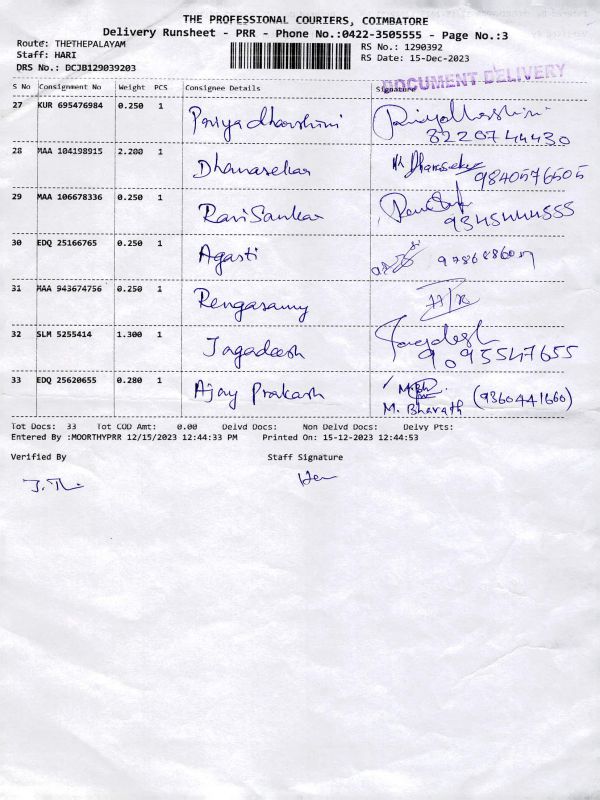 THE PROFESSIONAL COURIERS, COIMBATORE
Delivery Runsheet - PRR - Phone No.:0422-3505555 - Page No.:3
Route: THETHEPALAYAM RS No.: 1290392
Staff: HARI RS Date: 15-Dec-2023
DRS No.: DCJB129039203
DOCUMENT DELIVERY
S No Consignment No Weight PCS Consignee Details Signature
27 KUR 695476984 0.250 1 Priyadharshini Priyadharshini
8220744430
28 MAA 104198915 2.200 1 Dhanasekar Dhanasekar
9840576505
29 MAA 106678336 0.250 1 RaviSankar
9345444555
30 EDQ 25166765 0.250 1 Agasti
31 MAA 943674756 0.250 1 Rengasamy H/R
32 SLM 5255414 1.300 1 Jagadeesh Jagadesh
9095547655
33 EDQ 25620655 0.280 1 Ajay Prakash
M. Bharath (9360441660)
Tot Docs: 33 Tot COD Amt: 0.00 Delvd Docs: Non Delvd Docs: Delvy Pts:
Entered By :MOORTHYPRR 12/15/2023 12:44:33 PM Printed On: 15-12-2023 12:44:53
Verified By Staff Signature